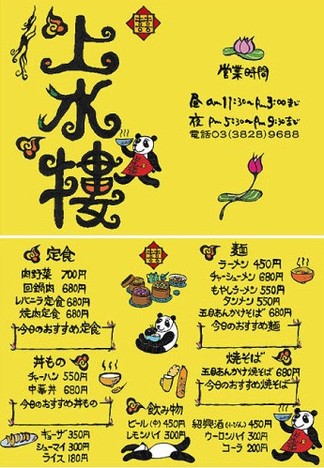 上水樓
営業時間
昼 am11:30〜pm3:00まで
夜 pm5:30〜pm9:30まで
電話03(3828)9688
定食
肉野菜 700円
回鍋肉 680円
レバニラ定食 680円
焼肉定食 680円
今日のおすすめ定食
丼もの
チャーハン 550円
中華丼 680円
今日のおすすめ丼もの
ギョーザ 350円
シューマイ 300円
ライス 180円
麺
ラーメン 450円
チャーシューメン 680円
もやしラーメン 550円
タンメン 550円
五目あんかけそば 680円
今日のおすすめ麺
焼そば
五目あんかけ焼そば 680円
今日のおすすめ焼そば
飲み物
ビール(中) 450円
レモンハイ 300円
紹興酒 450円
ウーロンハイ 300円
コーラ 200円